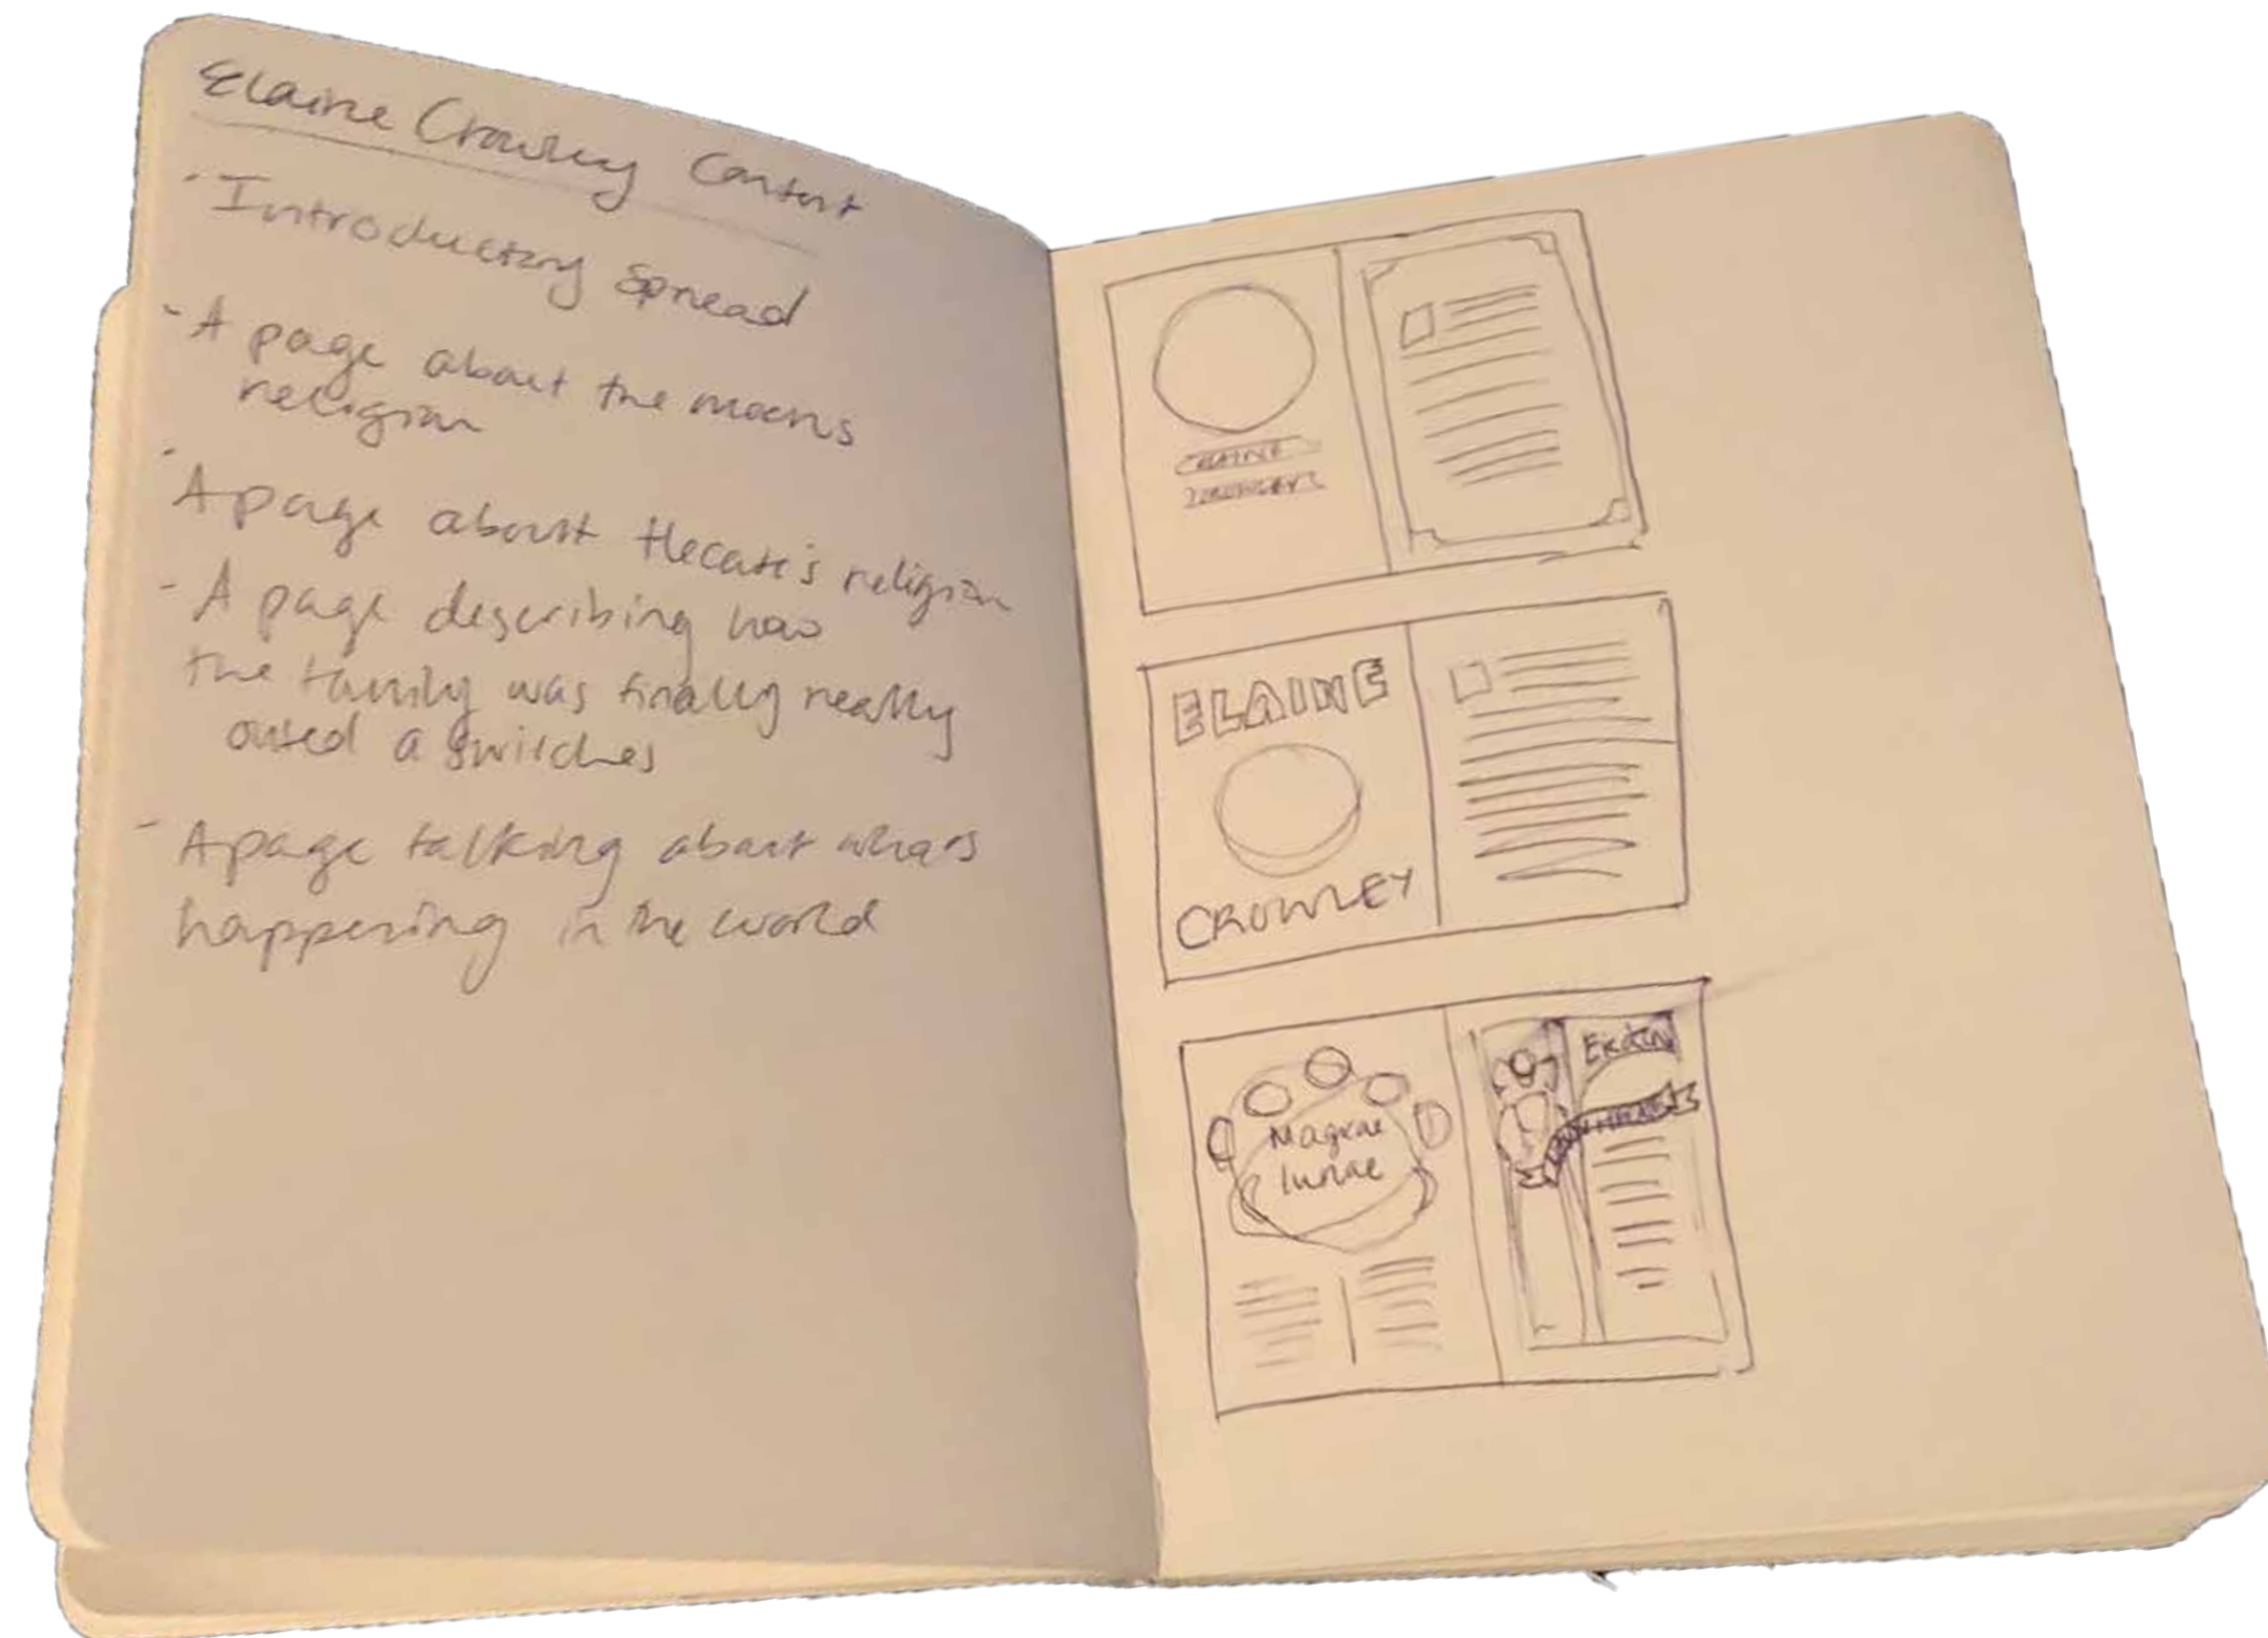 Elaine Crowley Content
- Introductory Spread
- A page about the moons
religion
- A page about Hecate's religion
- A page describing how
the family was finally really
outed a switches
- A page talking about whats
happening in the world
ELAINE
CROWLEY
ELAINE
CROWLEY
Magicae
lunae